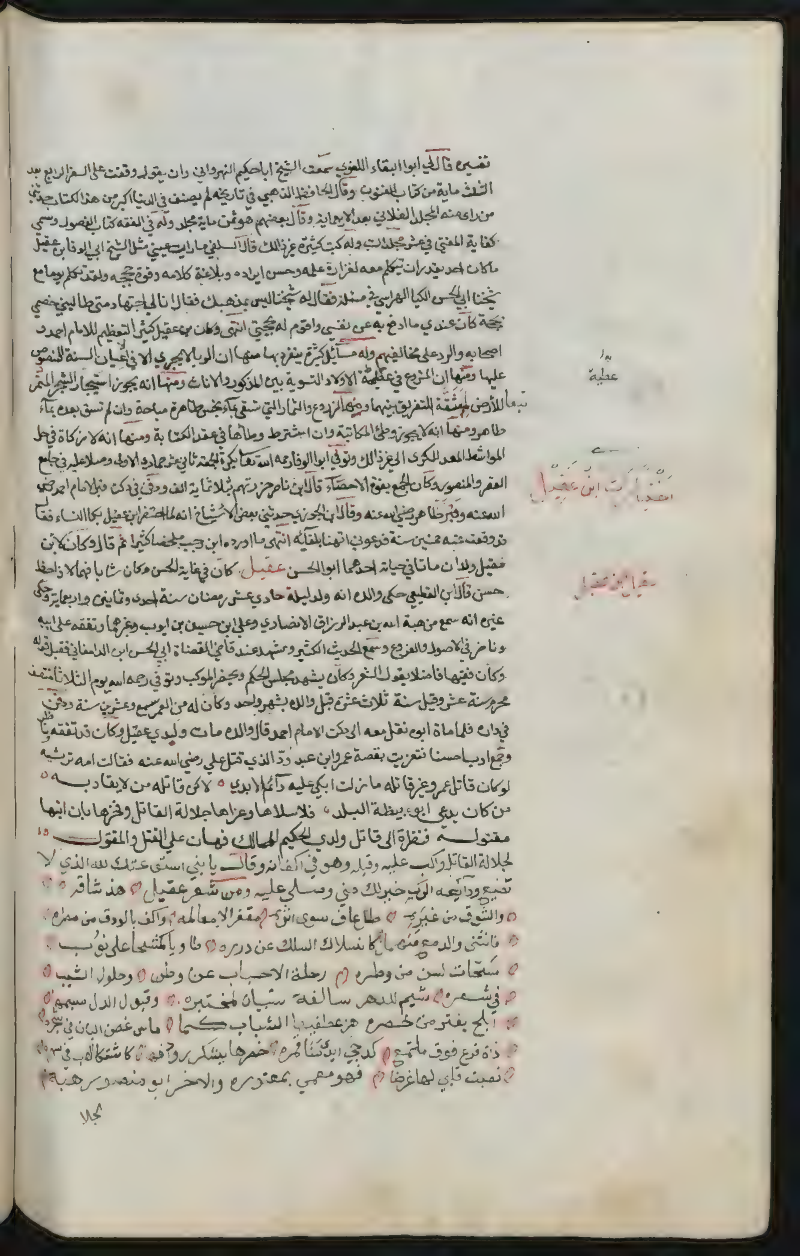 تفسيره قال لي ابوا البقاء اللغوي سمعت الشيخ ابا حكيم النهرواني وان يقول وقفت على السفر الرابع بعد
الثلث ماية من كتاب الفنون وقال الحافظ الذهبي في تاريخه لم يصنف في الدنيا اكبر من هذا الكتاب حدثني
من راى منه المجلد الفلاني بعد الاربعماية وقال بعضهم هو ثمن ماية مجلد وله في الفقه كتاب الفصول وسمى
كفاية المفتي في عشر مجلدات وله كتب كثيرة غير ذالك قال السلفي ما رايت عيني مثل الشيخ ابي الوفا بن عقيل
ما كان احد يقدر ان يتكلم معه لغزارة علمه وحسن ايراده وبلاغة كلامه وقوة حججه ولقد تكلم يوما مع
شيخنا ابي الحسن الكيا الهراسي في مسئلة فقال له شيخنا ليس بمذهبك فقال انا لي اجتهاد متى طالبني خصمي
بحجة كان عندي ما ادفع به عن نفسي واقوم له بحجتي انتهى وكان بن عقيل كثير التعظيم للامام احمد و
اصحابه والرد على مخالفيهم وله مسائل كثيرة ينفرد بها منها ان الربا لا يجري الا في اعيان الستة المنصوص
عليها ومنها ان المشروع في عطية الاولاد التسوية بين الذكور والاناث ومنها انه يجوز استيجار الشجر المثمر
تبعا للارض لمشقة التفريق بينهما ومنها الزروع والثمار التي تسقى بماء نجس طاهرة مباحة وان لم تسق بعده بماء
طاهر ومنها انه لا يجوز وطئ المكاتبة وان اشترط وطأها في عقد الكتابة ومنها انه لا زكاة في حلي
المواشط المعد للكرى الى غير ذالك وتوفي ابو الوفا رحمه الله تعالى بكرة الجمعة ثاني عشر جماد الاولى وصلي عليه في جامع
القصر والمنصور وكان الجمع يفوت الاحصاء قال ابن ناصر حزرتهم بثلاثماية الف ودفن في دكت قبر الامام احمد رضي
الله عنه وقبره ظاهر رضي الله عنه وقال ابن الجوزي حدثني بعض الاشياخ انه لما احتضر ابن عقيل بكا النساء فقال
قد وقفت عنه خمسين سنة فدعوني اتهنا بلقائه انتهى ما اورده ابن رجب ملخصا كثيرا ثم قال وكان لابن
عقيل ولدان ماتا في حياته احدهما ابو الحسن عقيل كان في غاية الحسن وكان شابا فهما لا ذا حظ
حسن قال ابن القطيعي حكى والده انه ولد ليلة حادي عشر رمضان سنة احدى وثمانين واربعماية وحكى
غيره انه سمع من هبة الله بن عبد الرزاق الانصاري وعلي ابن حسين بن ايوب وغيرهما وتفقه على ابيه
وناظر في الاصول والفروع وسمع الحديث الكثير وشهد عند قاضي القضاة ابي الحسن ابن الدامغاني فقبل قوله
وكان فقيها فاضلا يقول الشعر وكان يشهد مجلس الحكم ويحضر الموكب وتوفي رحمه الله يوم الثلاثا منتصف
محرم سنة عشر وقيل سنة ثلاث عشرة قبل والده بشهر واحد وكان له من العمر سبع وعشرين سنة ودفن
في داره فلما مات ابوه نقل معه الى دكت الامام احمد قال والده مات ولدي عقيل وكان قد تفقه وناظر
وجمع ادبا حسنا فتعزيت بقصة عمرو ابن عبد ود الذي قتل علي رضي الله عنه فقالت امه ترثيه
لو كان قاتل عمرو غير قاتله ما زلت ابكي عليه دائم الابدي لاكن قاتله من لا يقاد به
من كان يدعى ابوه بيضة البلد فاسلاها وعزاها جلالة القاتل وفخرها بان ابنها
مقتوله فنظرة الى قاتل ولدي الحكيم المالك فهان علي القتل والمقول
لجلالة القاتل واكب عليه وقبله وهو في اكفانه وقال يا بني استودعتك لله الذي لا
تضيع ودائعه الرب خير لك مني وصلي عليه ومن شعر عقيل هذ شاقه
والشوق من غيره طاعاف سوى اثره مقفر الا معالمه واكف بالودق من مطره
فانثنى والدمع منهملا كانسلاك السلك عن درره طاويا كشحا على نوب
سبحات لسن من وطره رحلة الاحباب عن وطن وحلول الشيب
في شعره شيم للدهر سالفة ستبان لمختبره وقبول الدل مبسمه
ابلج يفتر من خصره هز عطفيه الشباب كما ماس غصن البان في شجره
ذاة فرع فوق ملتمع كدجى ابدت سنا قمره خصرها يشكر روادفه كاشتكاء الصب في سهره
نصبت قلبي لها غرضا فهو مصمي بمعتوره والاخر ابو منصور هبة
الله
عطية
منقبة ابن عقيل
عقيل ابن عقيل